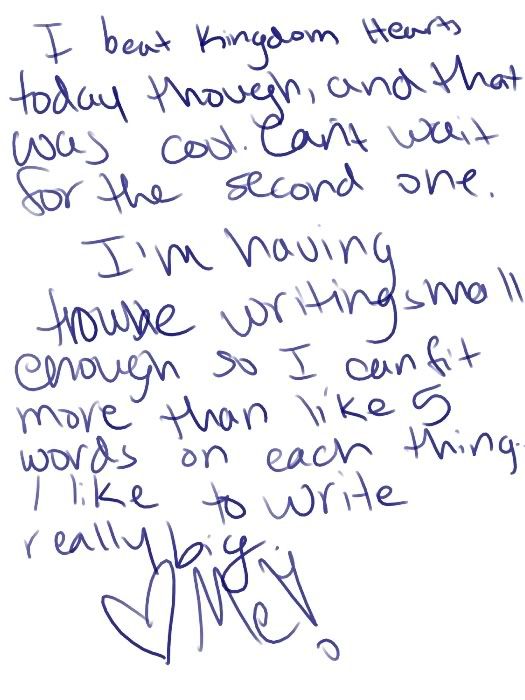 I beat Kingdom Hearts
today though, and that
was cool. Can't wait
for the second one.
I'm having
trouble writing small
enough so I can fit
more than like 5
words on each thing.
I like to write
really big.
♡ Me!